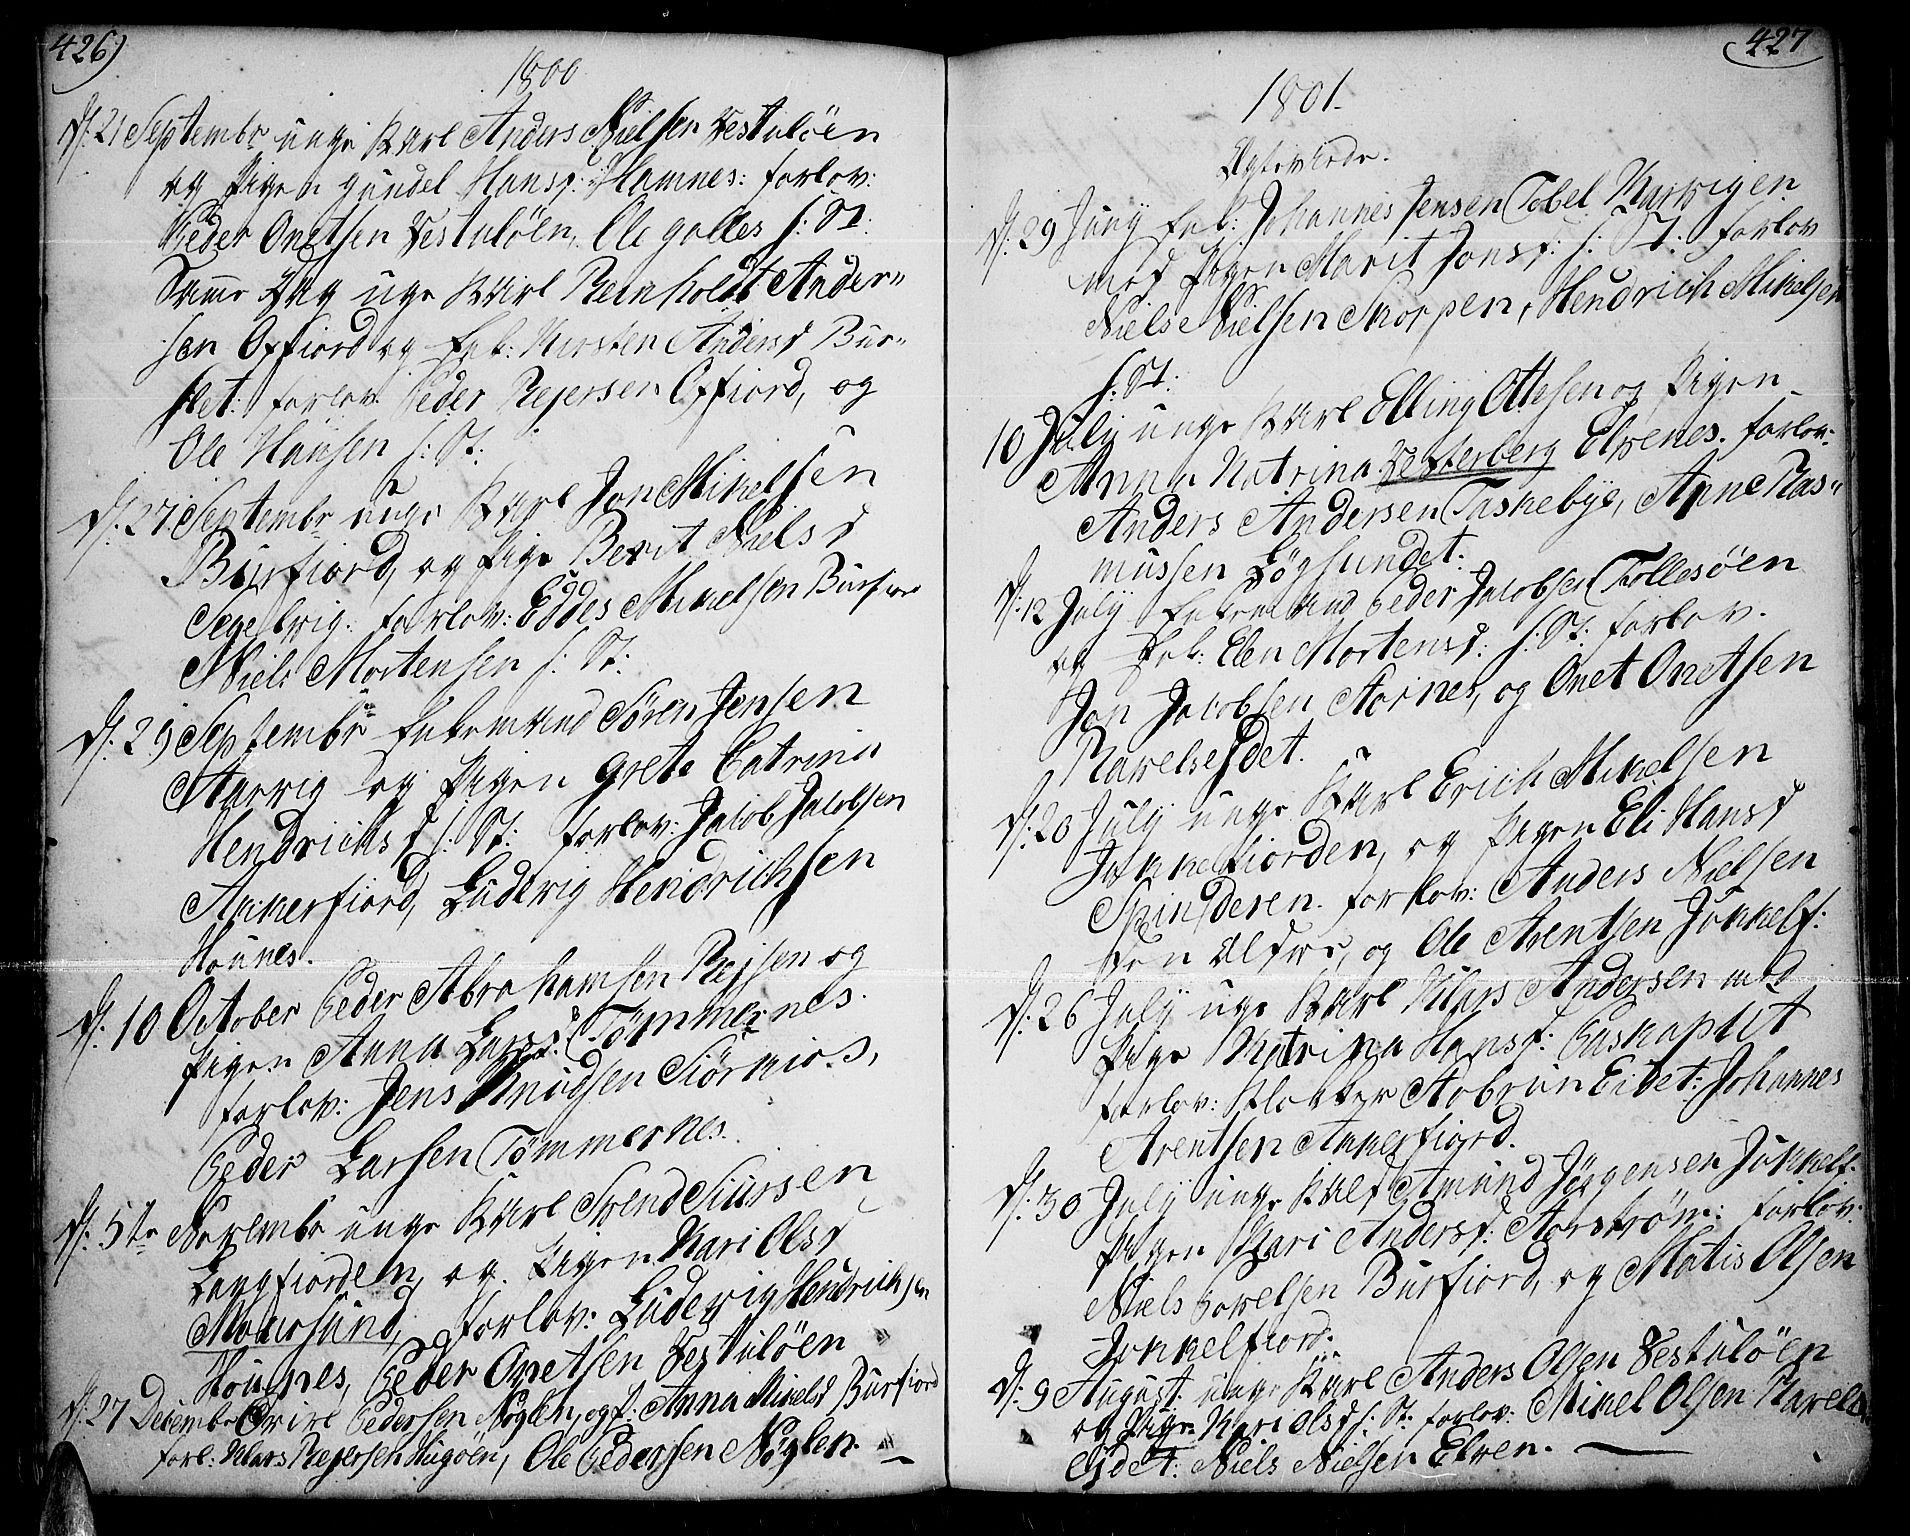 426)
1800
d: 21 Septembr unge Karl Anders Nielsen Vestuløen
og Pigen Gundel Hansd: Hamnes: forlov:
Peder Onetsen Vestuløen, Ole Galles s: St:
Samme Dag uge Karl Reinholdt Ander"
sen Oxfiord og Enk: Kirsten Andersd Bur"
stet: forlov: Peder Rejersen Oxfiord, og
Ole Hansen s: St:
d: 27 Septembr unge Karl Jon Mikelsen
Burfiord, og Pige Berit Nielsd
Segelvig: forlov: Eddes Mikkelsen Burfior
Niels Mortensen s: St:
d: 29 Septembr Enkemand Søren Jensen
Starvig og Pigen Grete Catrina
Hendrichsd s: St: forlov: Jacob Jacobsen
Akkerfiord, Ludevig Hendrichsen
Hounes.
d: 10 October Peder Abrahamsen Rejsen og
Pigen Anna Larsd: Tømmernes.
forlov: Jens Knudsen Siørnios,
Peder Larsen Tømmernes.
d: 5te Novembr unge Karl Svend Siursen
Langfiorden, og Pigen Kari Olsd
Moursund, forlov: Ludevig Hendrichsen
Hounes, Peder Onetsen Vestuløen
d: 27 Decembr Ovire Pedersen Nøglen, og f: Anna Mikelsd Burfiord
forl: Klars Rejersen Hugøen, Ole Pedersen Nøglen.
427
1801.
Egteviede.
d: 29 Juny Enk: Johannes Jensen Tobel Marvigen
med Pigen Marit Jonsd: s: St: forlov
Niels Nielsen Skorpen, Hendrich Mikelsen
s: St:
10 July unge Karl Elling Ottesen og Pigen
Anna Katrina Vesterberg Elvenes. forlov:
Anders Andersen Taskebye, Anne Ras"
mussen Løgsundet:
d: 12 July Enkemand Peder Jacobsen Follesøen
og Enk: Elen Mortensd: s: St: forlov.
Jon Jacobsen Aarnes, og Onet Onetsen
Ravelsejdet.
d: 20 July unge Karl Erich Mikelsen
Jøkkelfiorden, og Pigen Eli Hansd
Spinderen. forlov: Anders Nielsen
sten Alder, og Ole Arentsen Jøkkelf:
d: 26 July uge Karl Klars Andersen med
Pige Katrina Hansd: Caskaptet
forlov: Klokker Aobrun Eidet: Johannes
Arentsen Akkerfiord.
d: 30 July unge Karl Amund Jørgensen Jøkkelf:
Pigen Kari Andersd: Aorstrøm: forlov:
Niels Povelsen Burfiord, og Matis Olsen
Jøkkelfiord:
d: 9 August unge Karl Anders Olsen Vestuløen
og Pige Kari Olsd s: St: forlov: Mikel Olsen Ravels
ejdet: Niels Nielsen Elven.